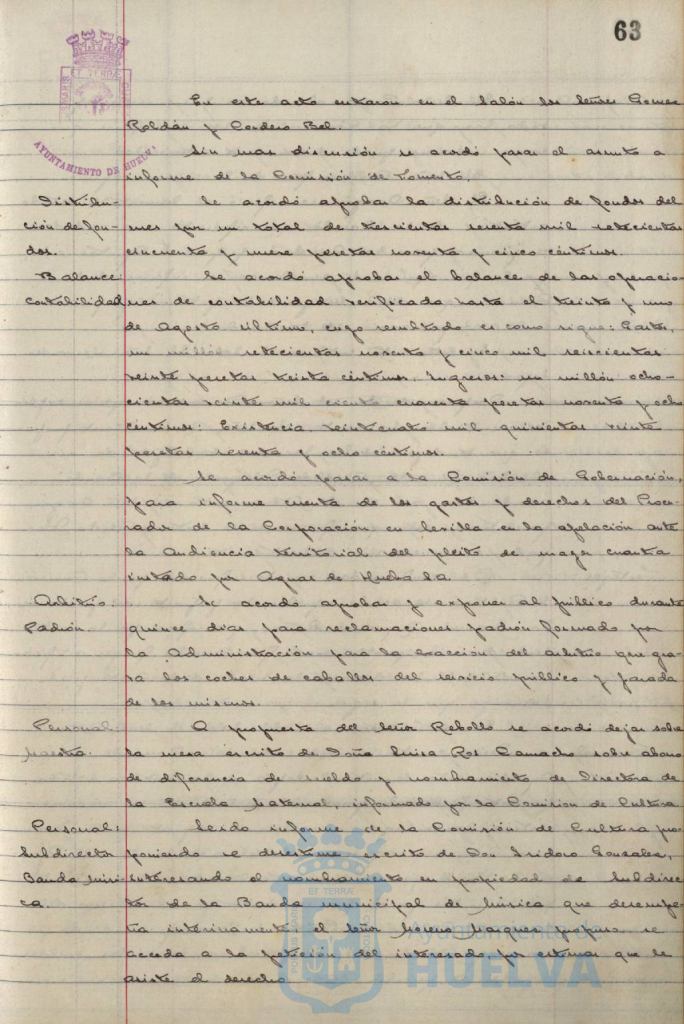 63
AYUNTAMIENTO DE HUELVA
En este acto entraron en el Salón los Señores Gomez
Roldán y Cordero Bel.
Sin mas discusión se acordó pasar el asunto a
informe de la Comisión de Fomento.
Distribu-
ción de fon-
dos.
Se acordó aprobar la distribución de fondos del
mes por un total de trescientas sesenta mil setecientas
cincuenta y nueve pesetas noventa y cinco céntimos.
Balance:
contabilidad
Se acordó aprobar el balance de las operacio-
nes de contabilidad verificada hasta el treinta y uno
de Agosto último, cuyo resultado es como sigue: Gastos,
un millón setecientas noventa y cinco mil seiscientas
veinte pesetas treinta céntimos. Ingresos: un millón ocho-
cientas veinte mil ciento cuarenta pesetas noventa y ocho
céntimos: Existencia, veinticuatro mil quinientas veinte
pesetas sesenta y ocho céntimos.
Se acordó pasar a la Comisión de Gobernación,
para informe cuenta de los gastos y derechos del Procu-
rador de la Corporación en Sevilla en la apelación ante
la Audiencia territorial del pleito de mayor cuantía
instado por Aguas de Huelva S.A.
Arbitrio:
Padrón
Se acordó aprobar y exponer al público durante
quince dias para reclamaciones padrón formado por
la Administración para la exacción del arbitrio que gra-
va los coches de caballos del servicio público y parada
de los mismos.
Personal:
Maestra.
A propuesta del Señor Rebollo se acordó dejar sobre
la mesa escrito de Doña Luisa Ros Camacho sobre abono
de diferencia de sueldo y nombramiento de Directora de
la Escuela Maternal, informado por la Comision de Cultura
Personal:
Subdirector
Banda músi-
ca.
Leido informe de la Comisión de Cultura pro-
poniendo se desestime escrito de Don Isidoro Gonzalez,
interesando el nombramiento en propiedad de Subdirec-
tor de la Banda municipal de Música que desempe-
ña interinamente, el Señor Moreno Marquez propuso se
acceda a la petición del interesado, por estimar que le
asiste el derecho
Ayuntamiento de
HUELVA